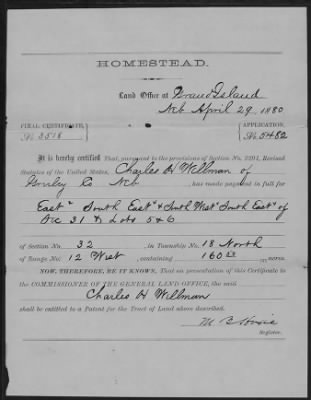 HOMESTEAD.
Land Office at Grand Island
Neb April 29, 1880
FINAL CERTIFICATE, APPLICATION,
No. 3518 No. 5482
It is hereby certified That, pursuant to the provisions of Section No. 2291, Revised
Statutes of the United States, Charles H Wellman of
Co Neb , has made payment in full for
East ½ South East ¼ & South West ¼ South East ¼ of
Sec 31 & Lots 5 & 6
of Section No. 32 in Township No. 18 North
of Range No. 12 West , containing 160 acres.
NOW, THEREFORE, BE IT KNOWN, That on presentation of this Certificate to
the COMMISSIONER OF THE GENERAL LAND OFFICE, the said
Charles H Wellman
shall be entitled to a Patent for the Tract of Land above described.
M B Hoxie
Register.